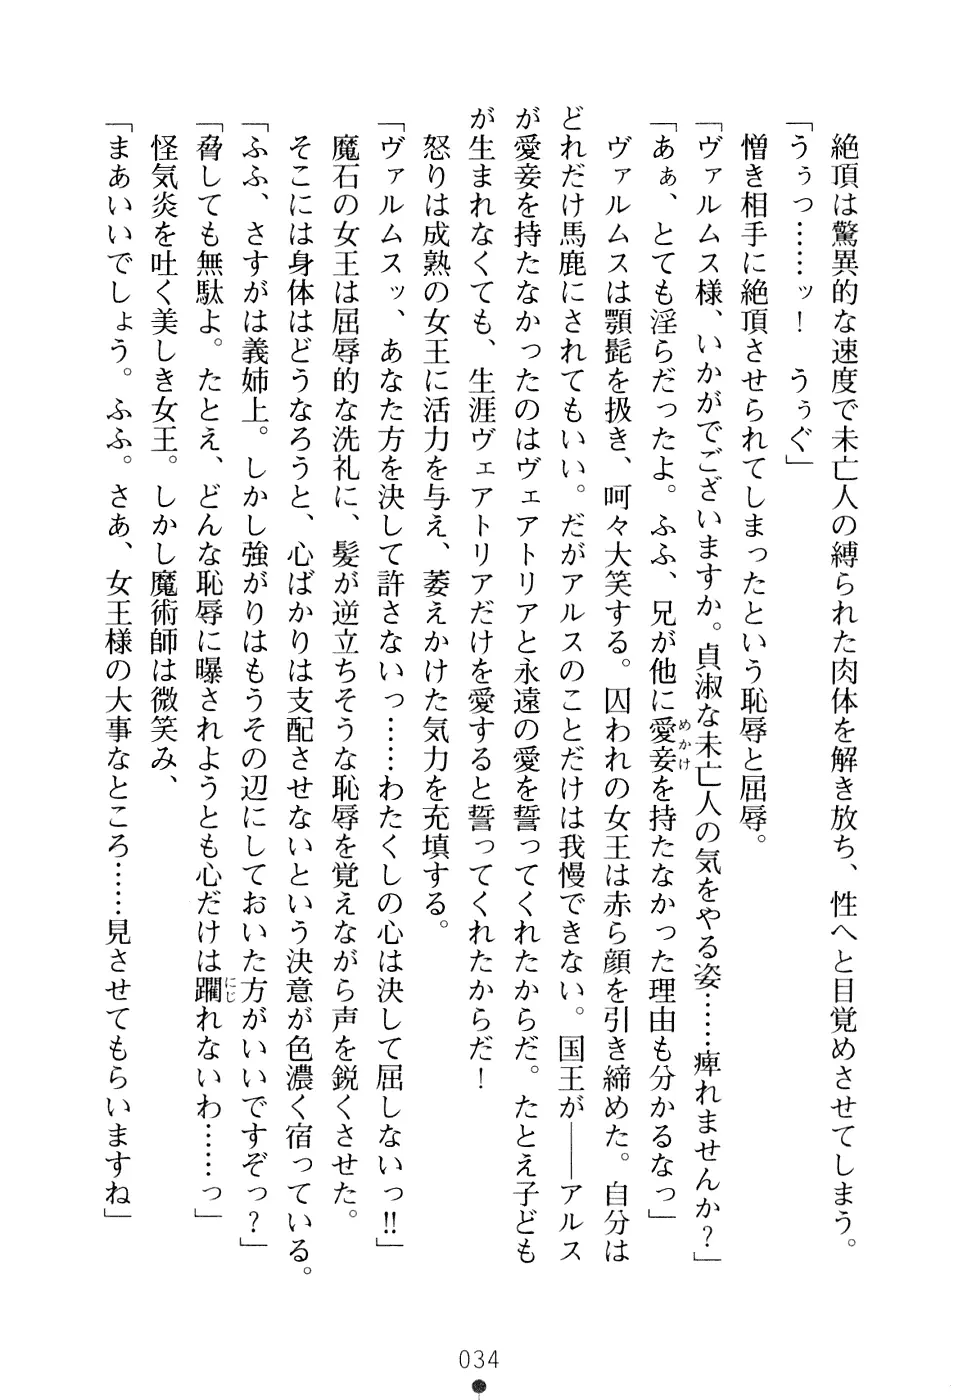 絶頂は驚異的な速度で未亡人の縛られた肉体を解き放ち、性へと目覚めさせてしまう。
「うぅっ……ッ！　うぅぐ」
憎き相手に絶頂させられてしまったという恥辱と屈辱。
「ヴァルムス様、いかがでございますか。貞淑な未亡人の気をやる姿……痺れませんか？」
「あぁ、とても淫らだったよ。ふふ、兄が他に愛妾を持たなかった理由も分かるなっ」
めかけ
ヴァルムスは顎髭を扱き、呵々大笑する。囚われの女王は赤ら顔を引き締めた。自分は
どれだけ馬鹿にされてもいい。だがアルスのことだけは我慢できない。国王が――アルス
が愛妾を持たなかったのはヴェアトリアと永遠の愛を誓ってくれたからだ。たとえ子ども
が生まれなくても、生涯ヴェアトリアだけを愛すると誓ってくれたからだ！
怒りは成熟の女王に活力を与え、萎えかけた気力を充填する。
「ヴァルムスッ、あなた方を決して許さないっ……わたくしの心は決して屈しないっ!!」
魔石の女王は屈辱的な洗礼に、髪が逆立ちそうな恥辱を覚えながら声を鋭くさせた。
そこには身体はどうなろうと、心ばかりは支配させないという決意が色濃く宿っている。
「ふふ、さすがは義姉上。しかし強がりはもうその辺にしておいた方がいいですぞっ？」
「脅しても無駄よ。たとえ、どんな恥辱に曝されようとも心だけは躙れないわ……っ」
にじ
怪気炎を吐く美しき女王。しかし魔術師は微笑み、
「まあいいでしょう。ふふ。さあ、女王様の大事なところ……見させてもらいますね」
034